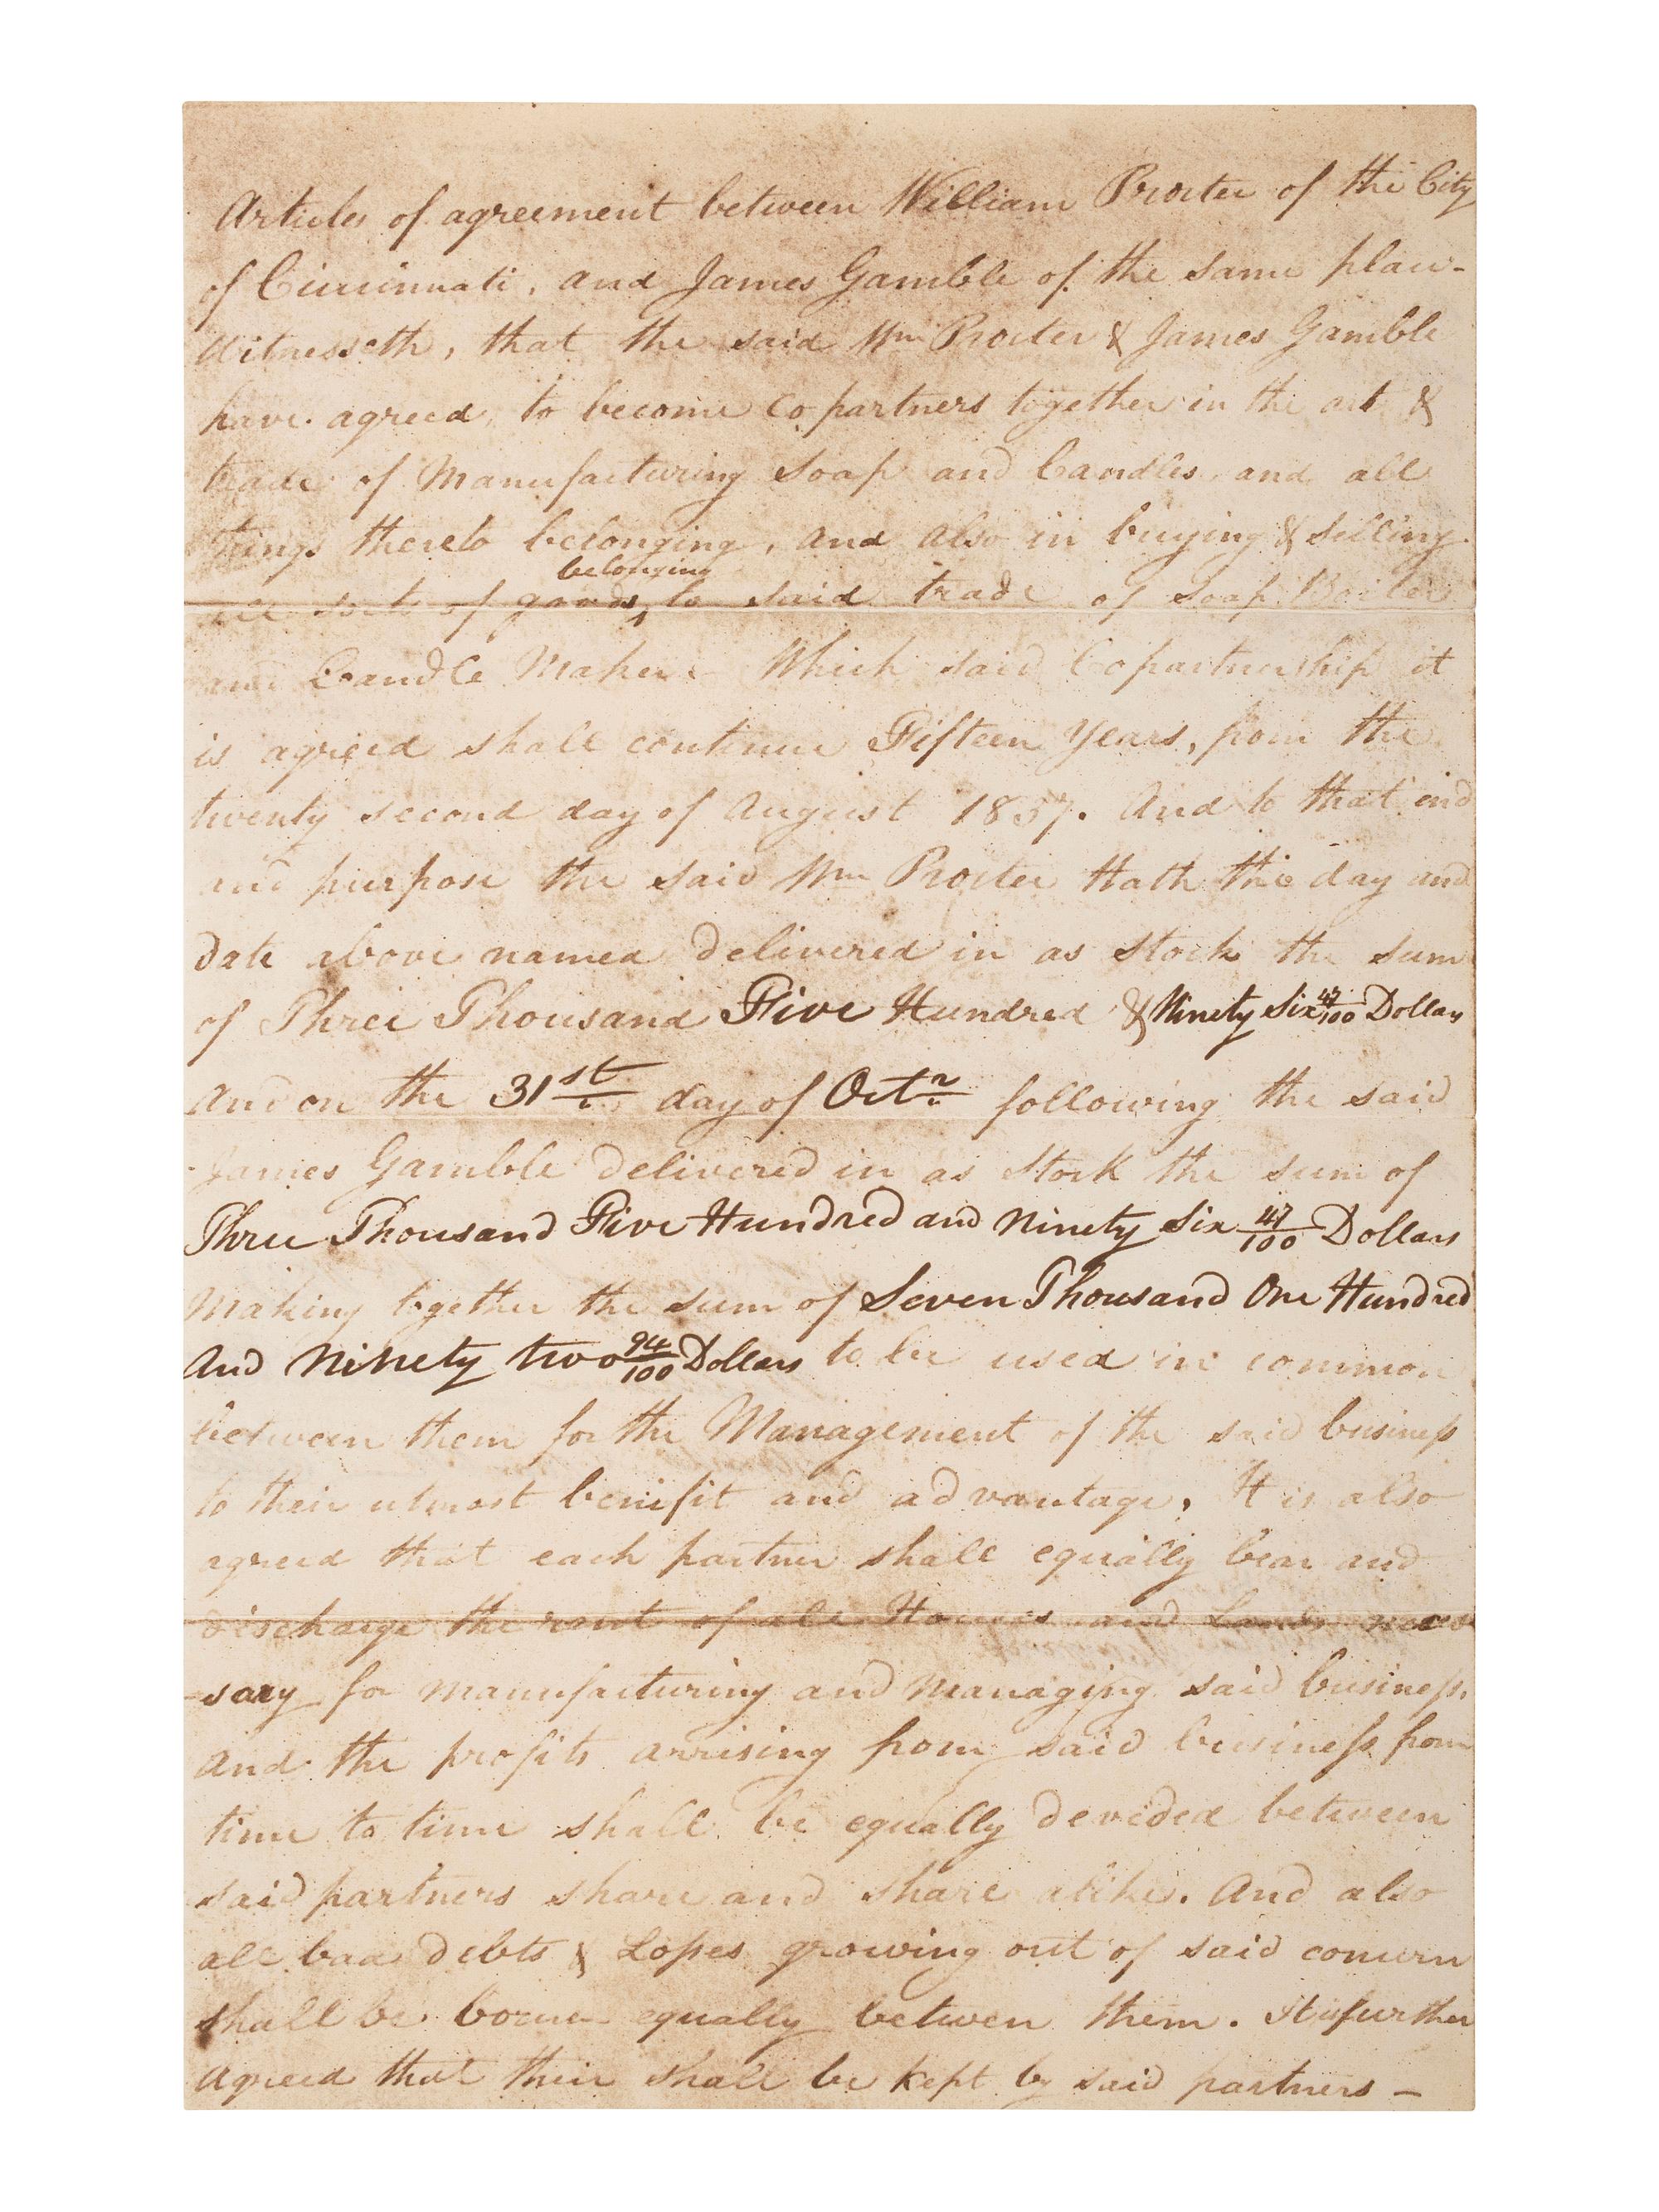 Articles of agreement between William Procter of the City
of Cincinnati, and James Gamble of the same place-
Witnesseth, that the said Wm Procter & James Gamble
have agreed, to become Copartners together in the art &
trade of Manufacturing Soap and Candles, and all
things thereto belonging, and also in buying & selling
belonging
all sorts of goods, to said trade of Soap Boiler
and Candle Maker. Which said Copartnership it
is agreed shall continue Fifteen Years, from the
twenty second day of August 1837. And to that end
and purpose the said Wm Procter Hath the day and
date above named delivered in as stock the sum
of Three Thousand Five Hundred & Ninety Six 47/100 Dollars
And on the 31st day of Octr following the said
James Gamble delivered in as Stock the sum of
Three Thousand Five Hundred and Ninety Six 47/100 Dollars
Making together the sum of Seven Thousand One Hundred
And Ninety two 94/100 Dollars to be used in common
between them for the Management of the said business
to their utmost benifit and advantage, It is also
agreed that each partner shall equally bear and
discharge the rent of all Houses and Lands neces
-sary for manufacturing and managing said business,
And the profits arrising from said business from
time to time shall be equally devided between
said partners share and share alike. And also
all bad debts & Losses growing out of said concern
shall be borne equally between them. It is further
agreed that their shall be kept by said partners -